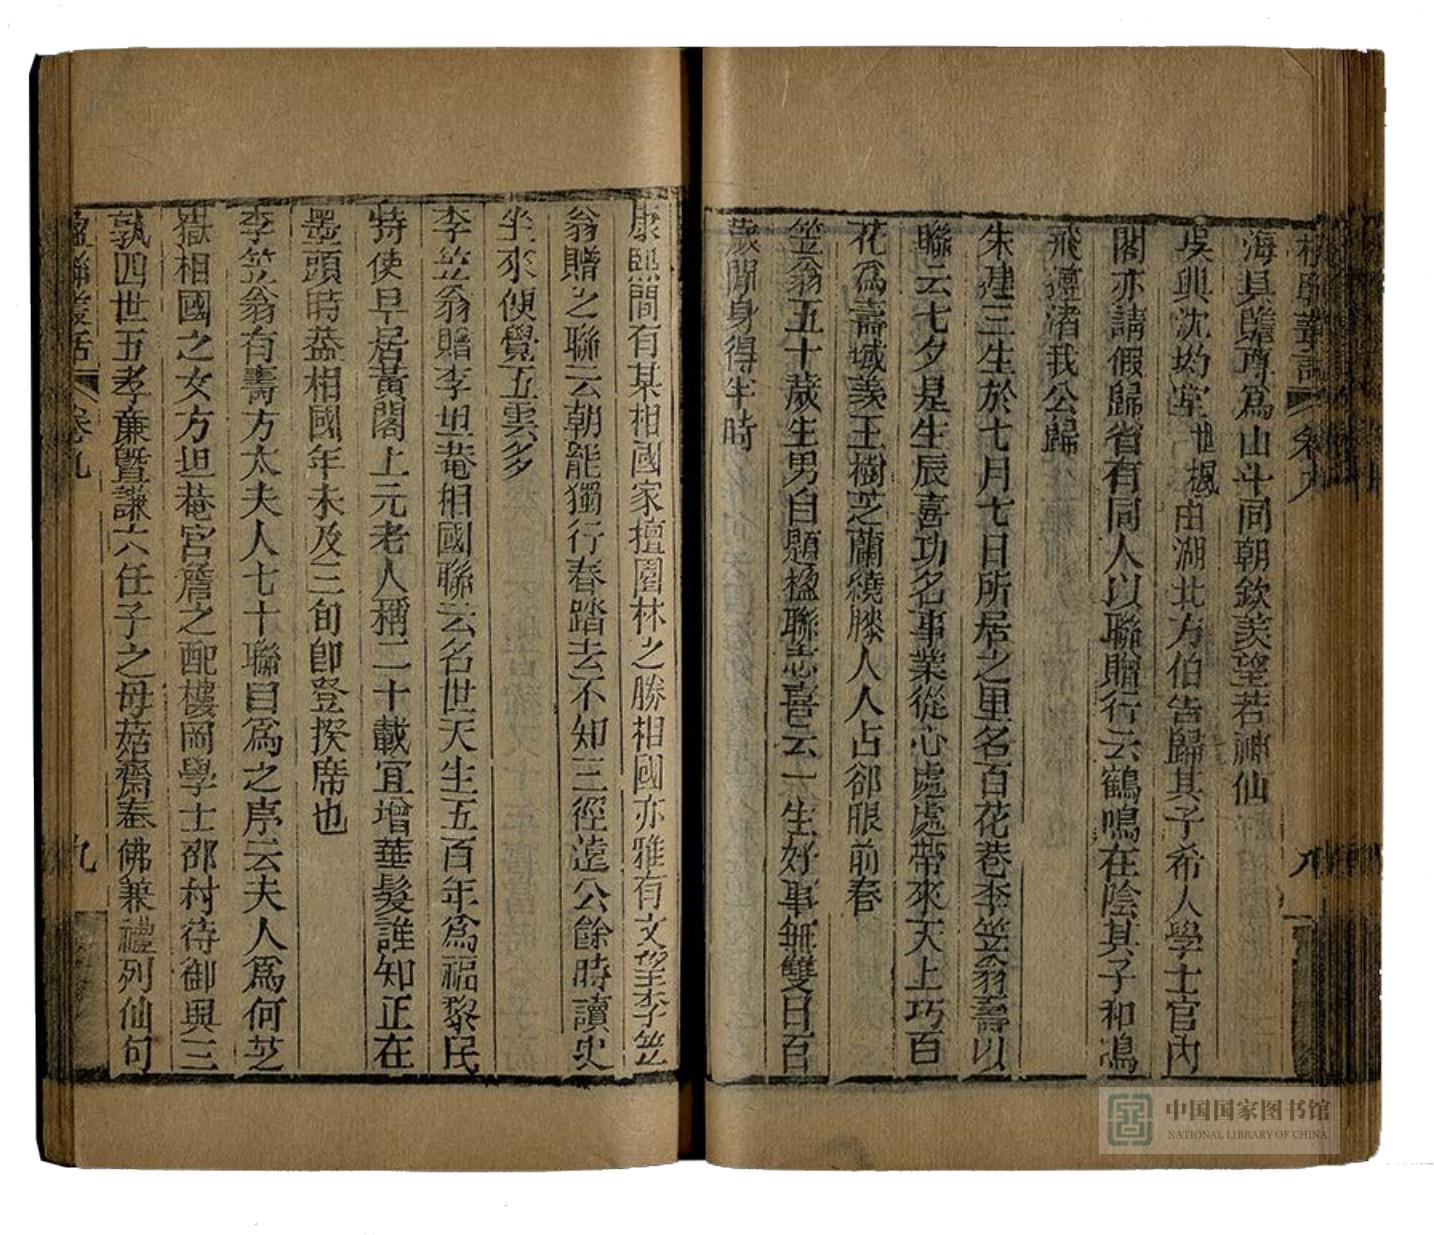 楹聯叢話 卷九 八
海具瞻尊爲山斗同朝欽羨望若神仙
吳興沈㘭堂世楓由湖北方伯告歸其子希人學士官內
閣亦請假歸省有同人以聯贈行云鶴鳴在陰其子和鴻
飛遵渚我公歸
朱建三生於七月七日所居之里名百花巷李笠翁壽以
聯云七夕是生辰喜功名事業從心處處帶來天上巧百
花爲壽域羨玉樹芝蘭繞膝人人占郤眼前春
笠翁五十歲生男自題楹聯志喜云一生好事無雙日百
歲閒身得半時
康熙間有某相國家擅園林之勝相國亦雅有文望李笠
翁贈之聯云朝罷獨行春踏去不知三徑遠公餘時讀史
坐來便覺五雲多
李笠翁贈李坦菴相國聯云名世天生五百年爲福黎民
特使早居黃閣上元老人稱二十載宜增華髮誰知正在
墨頭時葢相國年未及三旬卽登揆席也
李笠翁有壽方太夫人七十聯自爲之序云夫人爲何芝
嶽相國之女方坦菴宮詹之配樓岡學士邵村待御與三
孰四世五孝廉曁謙六任子之母茹齋奉佛兼禮列仙句
楹聯叢話 卷九 九
中国国家图书馆
NATIONAL LIBRARY OF CHINA